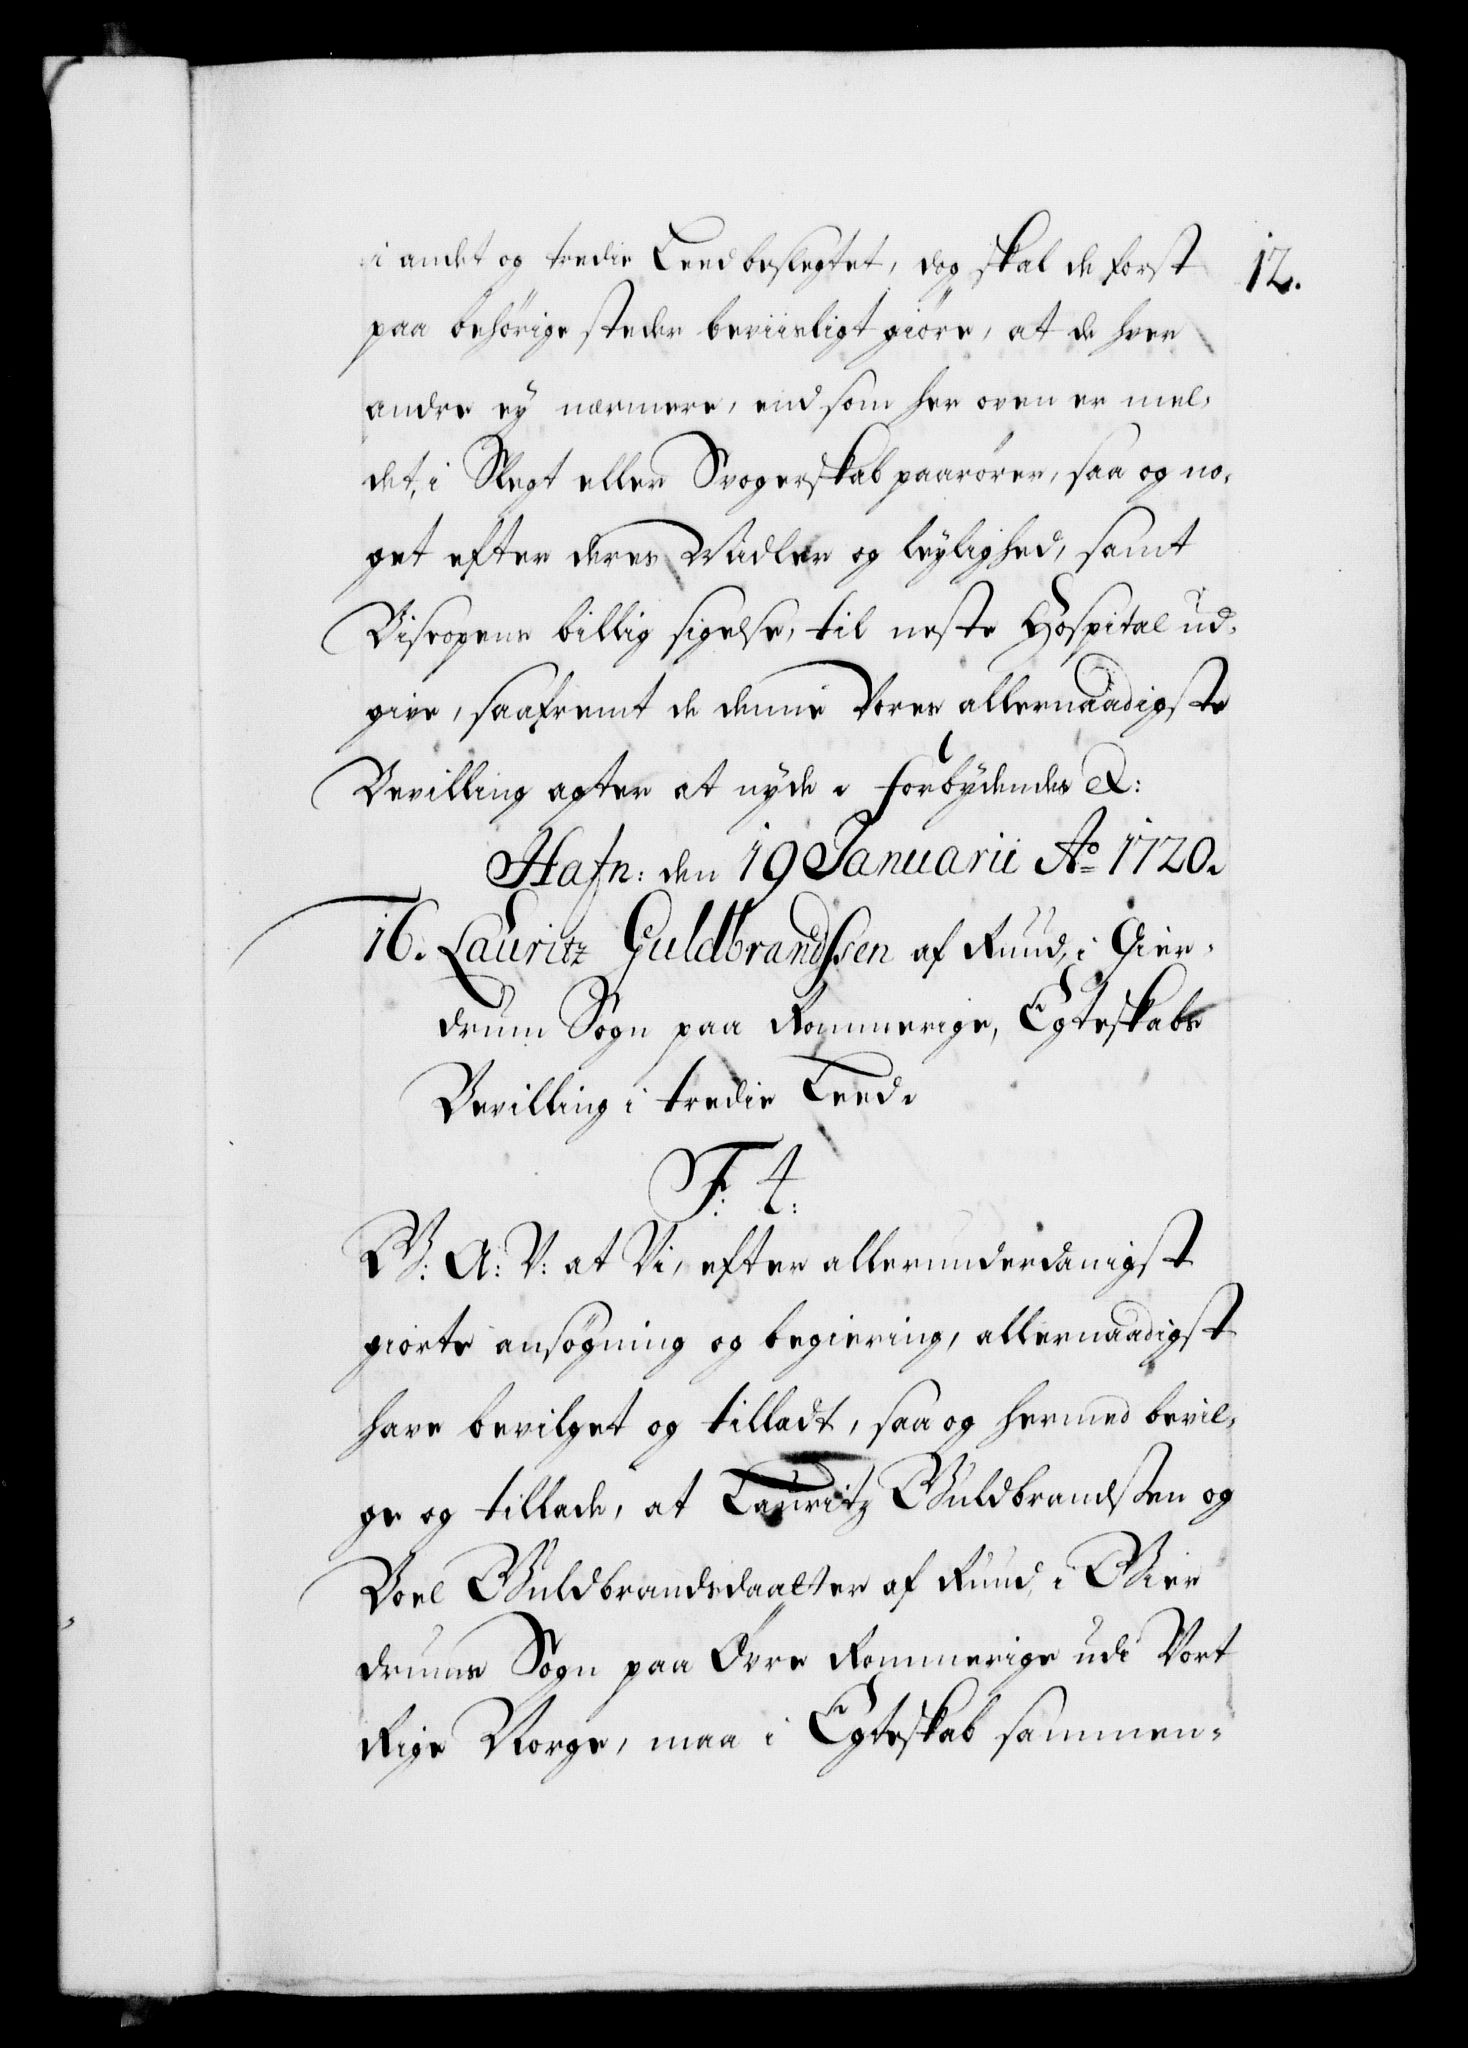 i andet og tredie Leed beslegtet, dog skal de först
12.
paa behörige steder beviisligt giöre, at de hver
andre ey nærmere, end som her oven er mel-
det, i Slegt eller Svogerskab paarörer, saa og no-
get efter deres Midler og leylighed, samt
Biscopens billig sigelse, til neste Hospital ud-
give, saafremt de denne Vores allernaadigste
Bevilling agter at nyde. Forbydendes &:
Hafn: den 19 Januarii Ao 1720.
16. Lauritz Guldbrandssen af Ruud, i Gier-
drum Sogn paa Rommerige, Egteskabs
Bevilling i tredie Leed.
F: 4:
G: A: V: at Vi, efter allerunderdanigst
giorte ansögning og begiering, allernaadigst
have bevilget og tilladt, saa og hermed bevil-
ge og tillade, at Lauritz Guldbrandssen og
Boel Guldbrandsdaatter af Ruud, i Gier
drums Sogn paa Övre Rommerige udi Vort
Rige Norge, maa i Egteskab sammen-